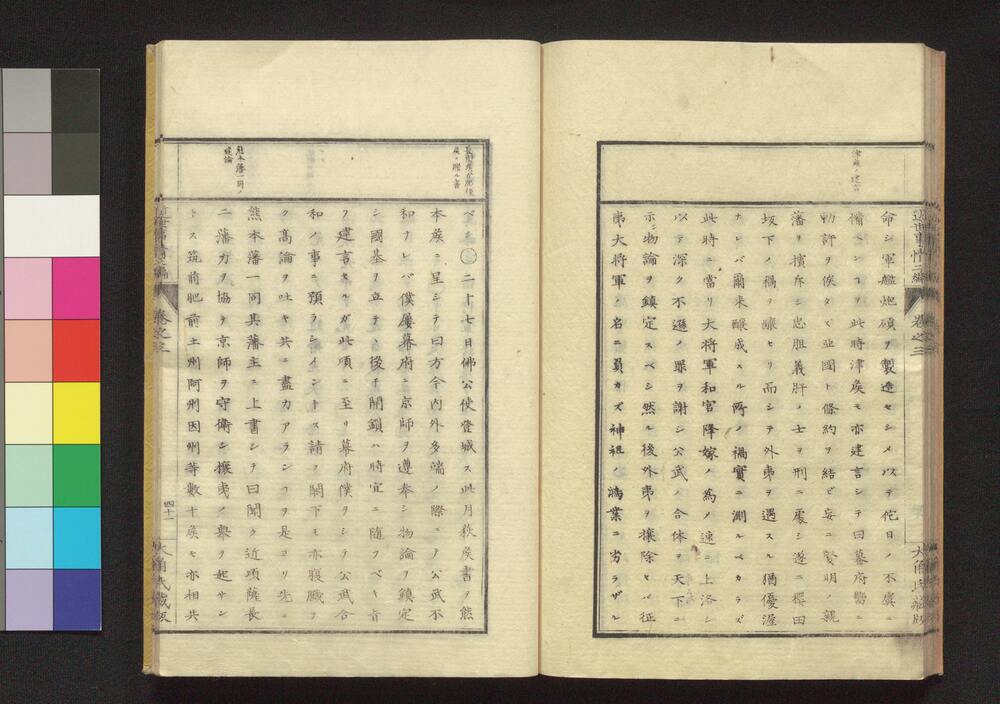 津侯ノ建言
近世事情二編 卷之三
大角氏蔵版
命シ軍艦炮礮ヲ製造セシメ以テ佗日ノ不虞ニ
備ヘシコヲ此時津侯モ亦建言シテ曰幕府嚮ニ
勅許ヲ俟タズ亜國ト條約ヲ結ビ妄ニ賢明ノ親
藩ヲ擯斥シ忠胆義肝ノ士ヲ刑ニ處シ遂ニ櫻田
坂下ノ禍ヲ釀セリ而シテ外夷ヲ遇スル猶優渥
ナレバ爾来釀成スル所ノ禍實ニ測ルベカラズ
此時ニ當リ大将軍和宮降嫁ノ為メ速ニ上洛シ
以テ深ク不遜ノ罪ヲ謝シ公武ノ合体ヲ天下ニ
示シ物論ヲ鎮定スベシ然ル後外夷ヲ攘除セバ征
夷大将軍ノ名ニ負カズ神祖ノ鴻業ニ劣ラザル
ベシ○二十七日佛公使登城ス此月秋侯書ヲ熊
本侯ニ呈シテ曰方今内外多端ノ際ニノ公武不
和ナレバ僕屡幕府ニ京師ヲ遵奉シ物論ヲ鎮定
シ國基ヲ立テ、後チ開鎖ハ時宜ニ随フベキ旨
ヲ建言セルガ此頃ニ至リ幕府僕ヲシテ公武合
和ノ事ニ預ラシメントス請フ閣下モ亦寢臓ヲ
ク高論ヲ吐キ共ニ盡力アランコヲ是ヨリ先ニ
熊本藩一同其藩主ニ上書シテ曰聞ク近頃薩長
二藩力ヲ協テ京師ヲ守衛シ攘夷ノ舉ヲ起サン
トス筑前肥前土州阿州因州等數十侯モ亦相共
熊本藩一同ノ
建論
卷之三
四十一
大角氏蔵版